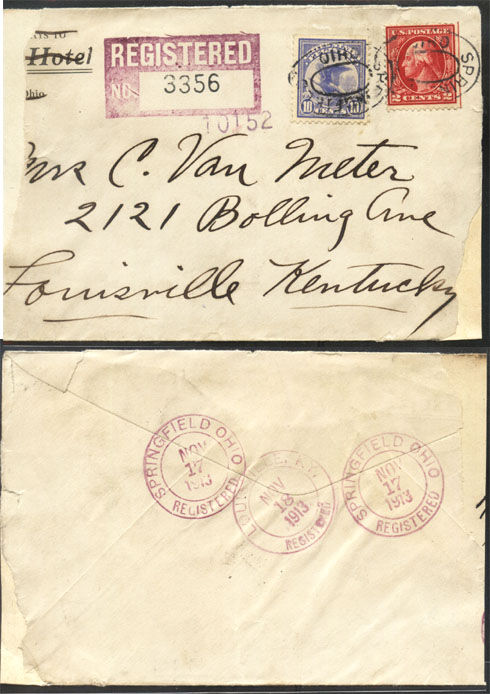 AYS TO
Hotel
Ohio
REGISTERED
NO. 3356
10152
10 10
U.S. POSTAGE
2 CENTS 2
OHIO
SPRI
C. Van Meter
2121 Bolling Ave
Louisville Kentucky
SPRINGFIELD OHIO
NOV
17
1913
REGISTERED
LOUI E, KY.
NOV
18
1913
REGISTERED
SPRINGFIELD OHIO
NOV
17
1913
REGISTERED